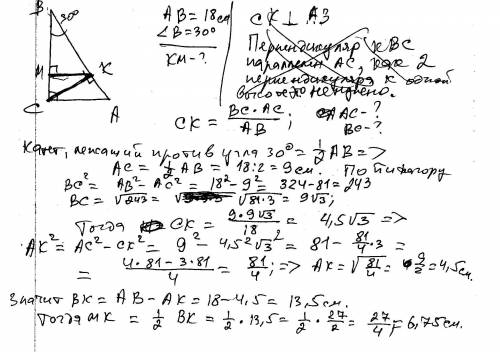 B
30°
M
K
C
A
AB = 18 см
∠B = 30°
KM - ?
CK ⊥ AB
Перпендикуляр к BC
параллелен AC, как 2
перпендикуляра к одной
CK = BC · AC / AB ; AC - ?
BC - ?
Катет, лежащий против угла 30° = 1/2 AB =>
AC = 1/2 AB = 18:2 = 9 см. По Пифагору
BC² = AB² - AC² = 18² - 9² = 324 - 81 = 243
BC = √243 = √81·3 = 9√3;
Тогда CK = 9·9√3 / 18 = 4,5√3 =>
AK² = AC² - CK² = 9² - 4,5²√3² = 81 - 81/4 · 3 =
= 4·81 - 3·81 / 4 = 81/4; => AK = √81/4 = 9/2 = 4,5 см.
Значит BK = AB - AK = 18 - 4,5 = 13,5 см.
Тогда MK = 1/2 BK = 1/2 · 13,5 = 1/2 · 27/2 = 27/4 = 6,75 см.